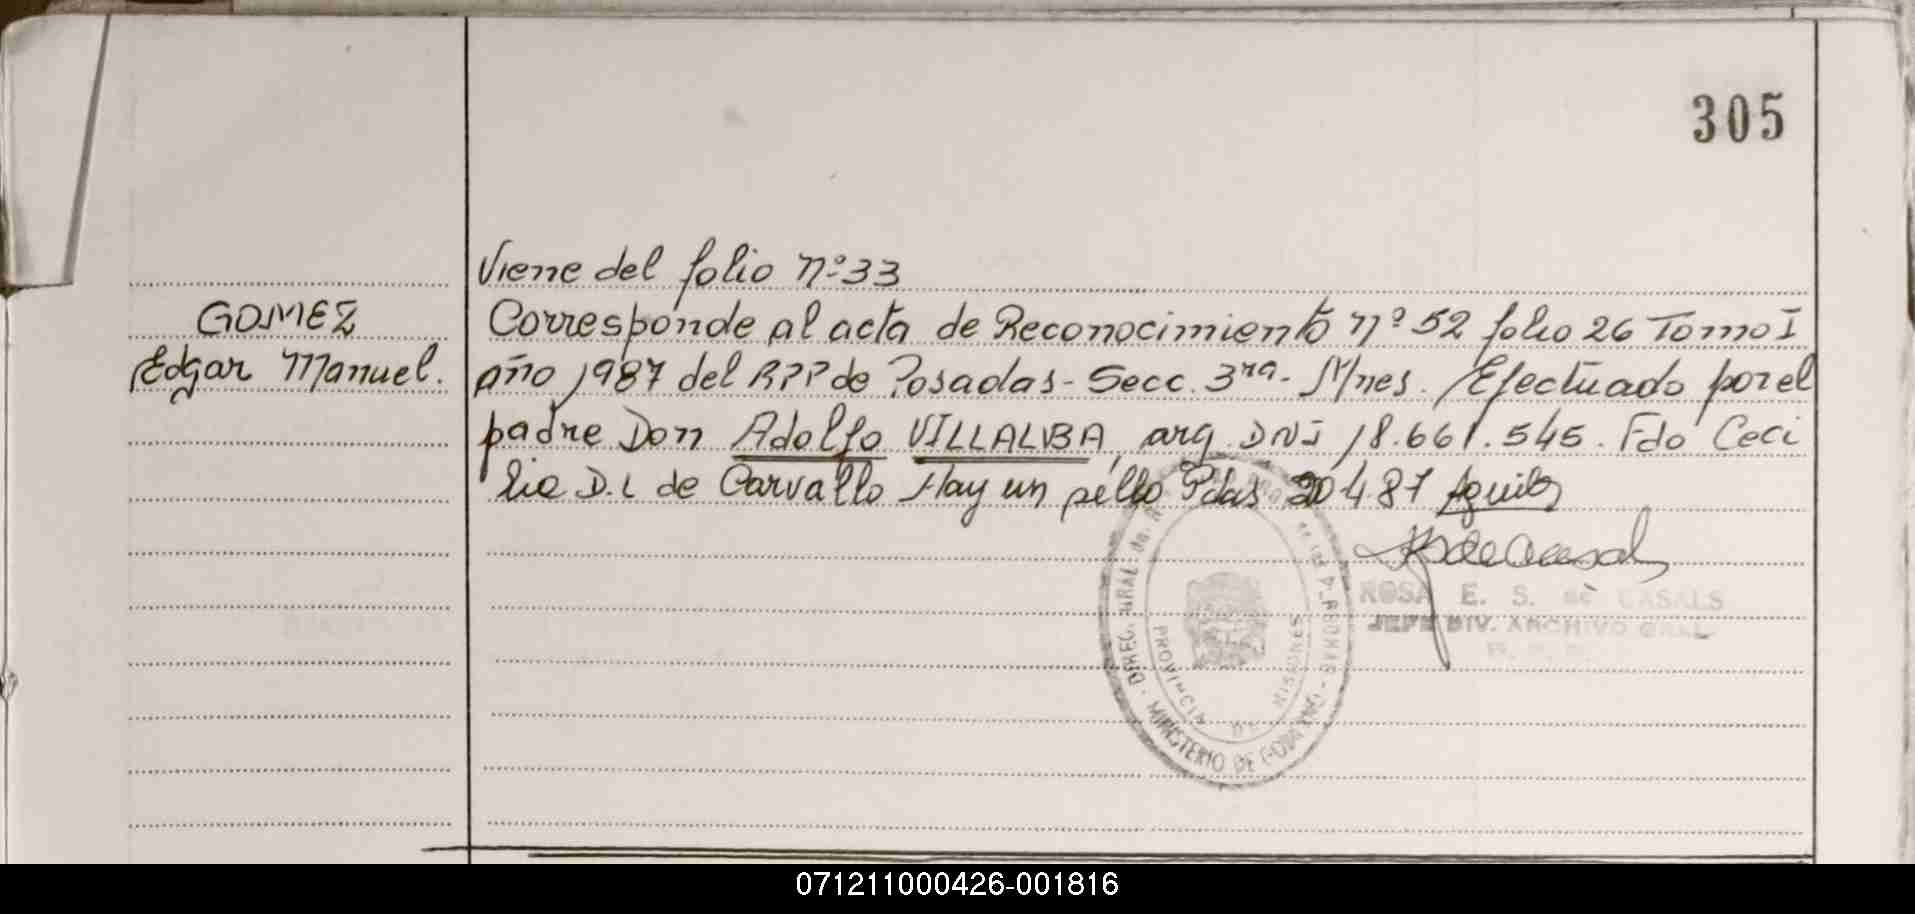 305
Viene del folio nº33
GOMEZ
Edgar Manuel.
Corresponde al acta de Reconocimiento nº 52 folio 26 Tomo I
año 1987 del RPP de Posadas - Secc. 3ra - Mnes. Efectuado por el
padre Don Adolfo VILLALBA, arg. DNI 18.661.545. Fdo Ceci
lia D.L de Carvallo Hay un sello Pdas 20 4 87
ROSA E. S. de CASALS
JEFE DIV. ARCHIVO GRAL.
DIREC. GRAL. de las PERSONAS - MINISTERIO DE GOBIERNO
PROVINCIA DE MISIONES
071211000426-001816